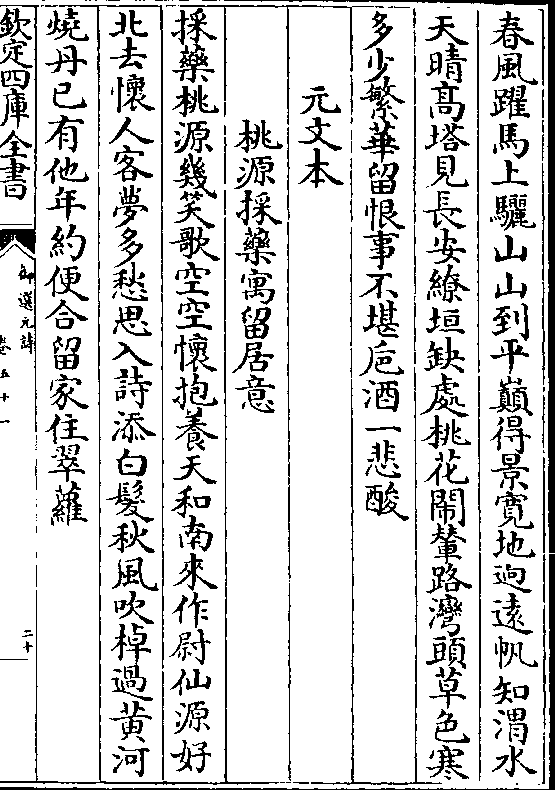 春風躍馬上驪山山到平巔得景寛地迥遠帆知渭水
天晴髙塔見長安繚垣缺處桃花閙輦路灣頭草色寒
多少繁華留恨事不堪巵酒一悲酸
元文本
桃源採藥寓留居意
採藥桃源幾笑歌空空懷抱養天和南來作尉仙源好
北去懷人客夢多愁思入詩添白髮秋風吹棹過黄河
燒丹已有他年約便合留家住翠蘿
欽定四庫全書
御選元詩
卷五十一
二十